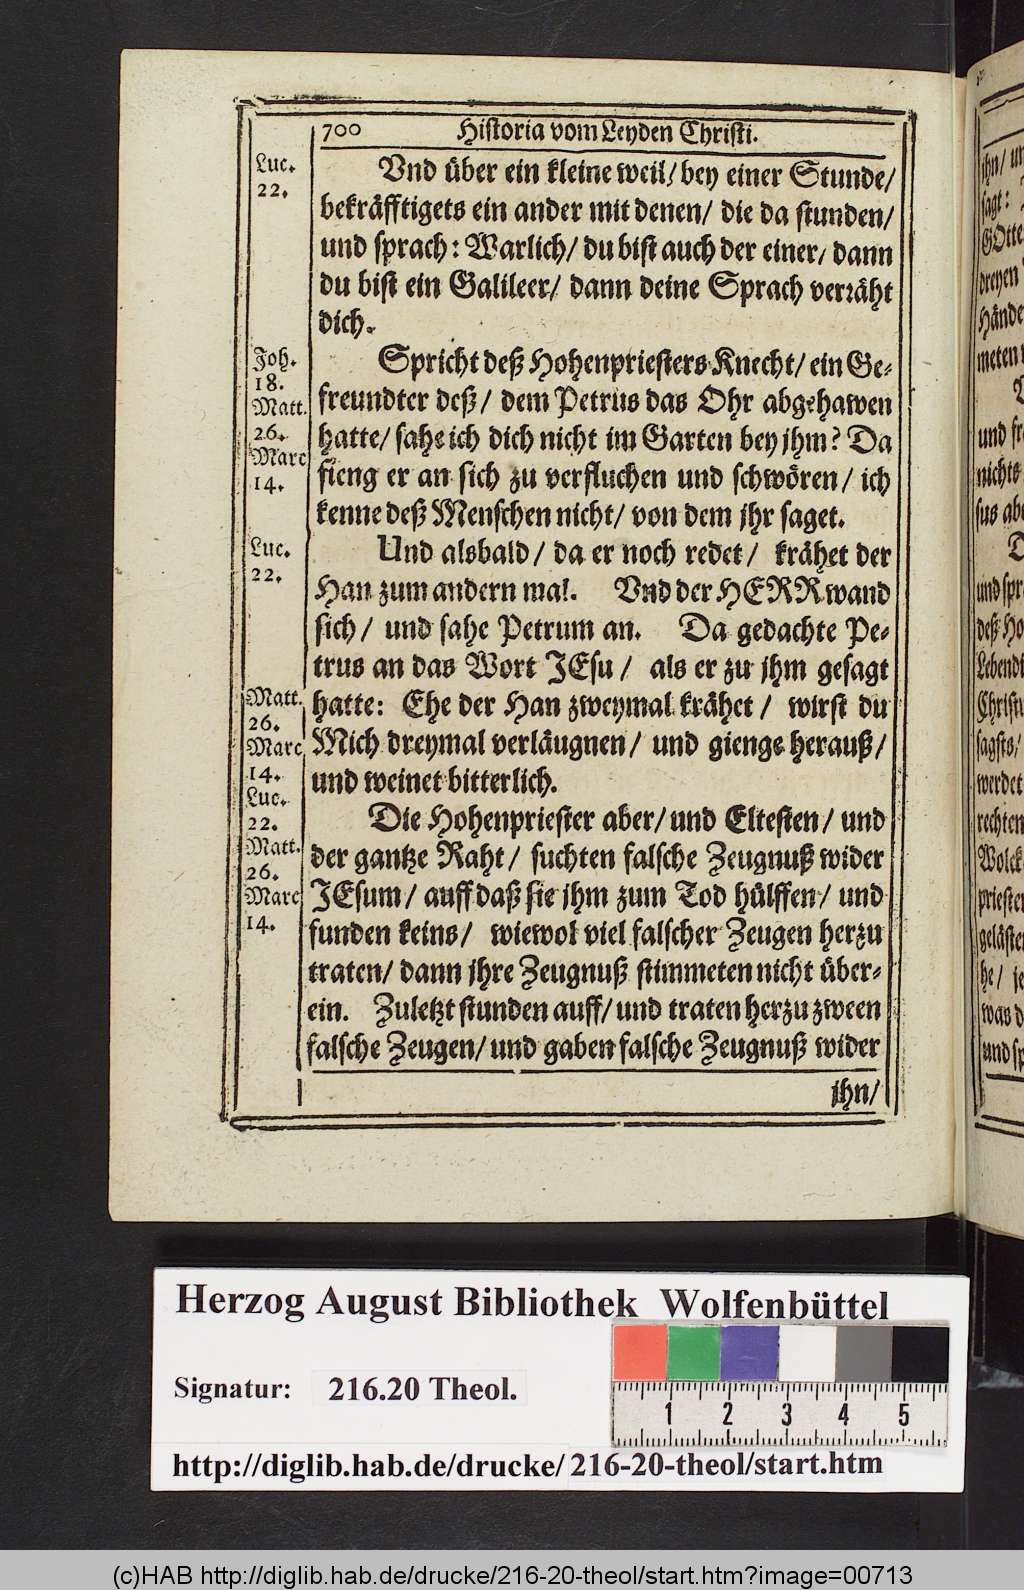 700 Historia vom Leyden Christi.
Luc.
22.
Vnd über ein kleine weil/ bey einer Stunde/
bekräfftigets ein ander mit denen/ die da stunden/
und sprach: Warlich/ du bist auch der einer/ dann
du bist ein Galileer/ dann deine Sprach verräht
dich.
Joh.
18.
Matt.
26.
Marc
14.
Spricht deß Hohenpriesters Knecht/ ein Ge-
freundter deß/ dem Petrus das Ohr abgehawen
hatte/ sahe ich dich nicht im Garten bey jhm? Da
fieng er an sich zu verfluchen und schwören/ ich
kenne deß Menschen nicht/ von dem jhr saget.
Luc.
22.
Und alsbald/ da er noch redet/ krähet der
Han zum andern mal. Vnd der HERR wand
sich/ und sahe Petrum an. Da gedachte Pe-
trus an das Wort JEsu/ als er zu jhm gesagt
Matt.
26.
Marc
14.
Luc.
22.
hatte: Ehe der Han zweymal krähet/ wirst du
Mich dreymal verläugnen/ und gienge herauß/
und weinet bitterlich.
Matt.
26.
Marc
14.
Die Hohenpriester aber/ und Eltesten/ und
der gantze Raht/ suchten falsche Zeugnuß wider
JEsum/ auff daß sie jhm zum Tod hülffen/ und
funden keins/ wiewol viel falscher Zeugen herzu
traten/ dann jhre Zeugnuß stimmeten nicht über-
ein. Zuletzt stunden auff/ und traten herzu zween
falsche Zeugen/ und gaben falsche Zeugnuß wider
jhn/
Herzog August Bibliothek Wolfenbüttel
Signatur: 216.20 Theol.
1 2 3 4 5
http://diglib.hab.de/drucke/216-20-theol/start.htm
(c)HAB http://diglib.hab.de/drucke/216-20-theol/start.htm?image=00713